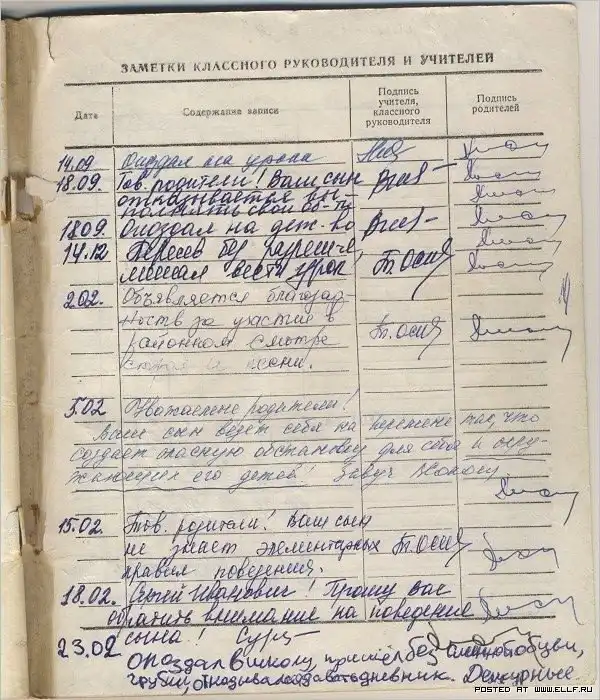 ЗАМЕТКИ КЛАССНОГО РУКОВОДИТЕЛЯ И УЧИТЕЛЕЙ
Дата
Содержание записи
Подпись учителя, классного руководителя
Подпись родителей
14.09 Опоздал на уроки
18.09. Тов. родители! Ваш сын
отказывается вы-
полнять свои
18.09 Опоздал на деж-во
14.12 бег
мешал вести урок Т. Осип
2.02. Объявляется благодар-
ность за участие в
районном смотре Т. Осип
строя и песни.
5.02 Уважаемые родители!
Ваш сын ведет себя на перемене так, что
создает опасную обстановку для себя и окру-
жающих его детей! Завуч
15.02. Тов. родители! Ваш сын
не знает элементарных Т. Осип
правил поведения.
18.02. Иванович! Прошу Вас
обратить внимание на поведение
сына!
23.02 опоздал в школу, пришёл без сменной обуви,
грубил, отказывался дать дневник. Дежурные
POSTED AT WWW.ELLF.RU